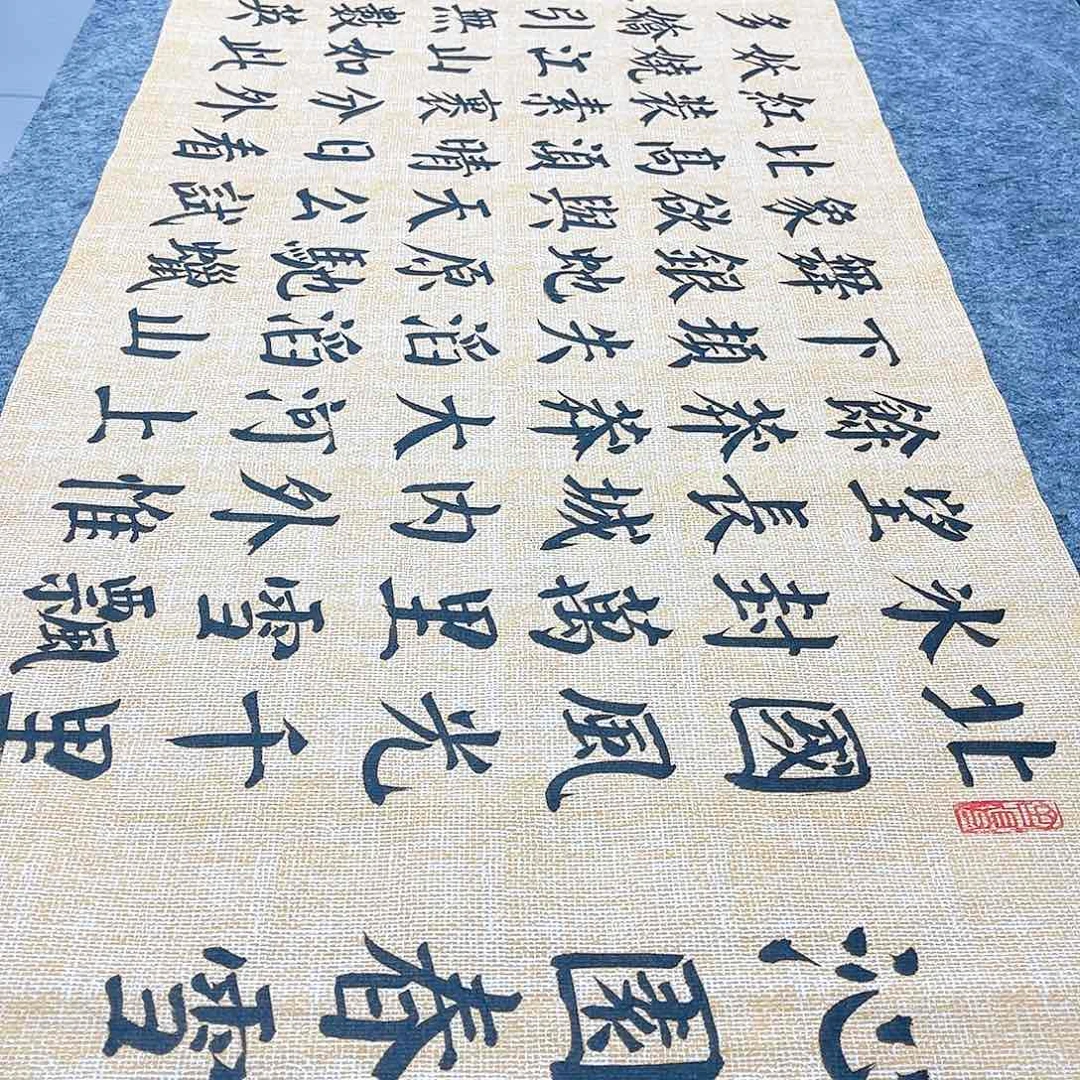 沁園春雪
北國風光千里
冰封萬里雪飄
望長城內外惟
餘莽莽大河上
下頓失滔滔山
舞銀蛇原馳蠟
象欲與天公試
比高須晴日看
紅裝素裹分外
妖嬈江山如此
多嬌引無數英